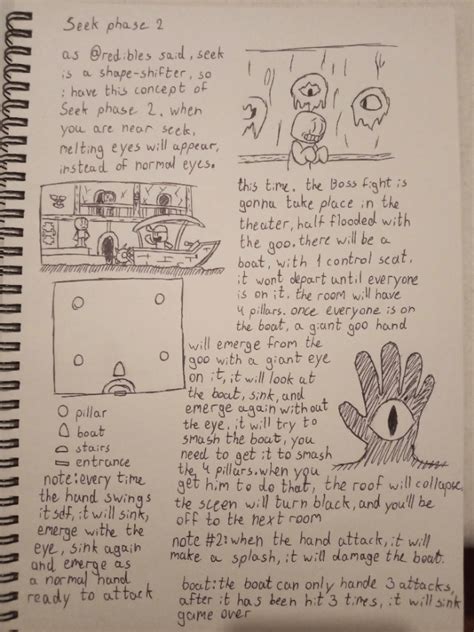 Seek phase 2
as @redibles said, seek
is a shape-shifter, so
i have this concept of
Seek phase 2. when
you are near seek,
melting eyes will appear,
instead of normal eyes.
this time. the Boss fight is
gonna take place in the
theater, half flooded with
the goo. there will be a
boat, with 1 control seat.
it wont depart until everyone
is on it. the room will have
4 pillars. once everyone is on
the boat, a giant goo hand
will emerge from the
goo with a giant eye
on it, it will look at
the boat, sink, and
emerge again without
the eye. it will try to
smash the boat, you
need to get it to smash
the 4 pillars. when you
get him to do that, the roof will collapse
the sceen will turn black, and you'll be
off to the next room
pillar
boat
stairs
entrance
note: every time
the hand swings
itself, it will sink,
emerge withe the
eye, sink again
and emerge as
a normal hand
ready to attack
note #2: when the hand attack, it will
make a splash, it will damage the boat.
boat: the boat can only hande 3 attacks,
after it has been hit 3 times, it will sink
game over